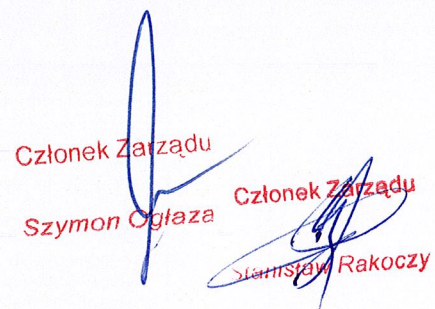 Członek Zarządu
Szymon Ogłaza
Członek Zarządu
Stanisław Rakoczy